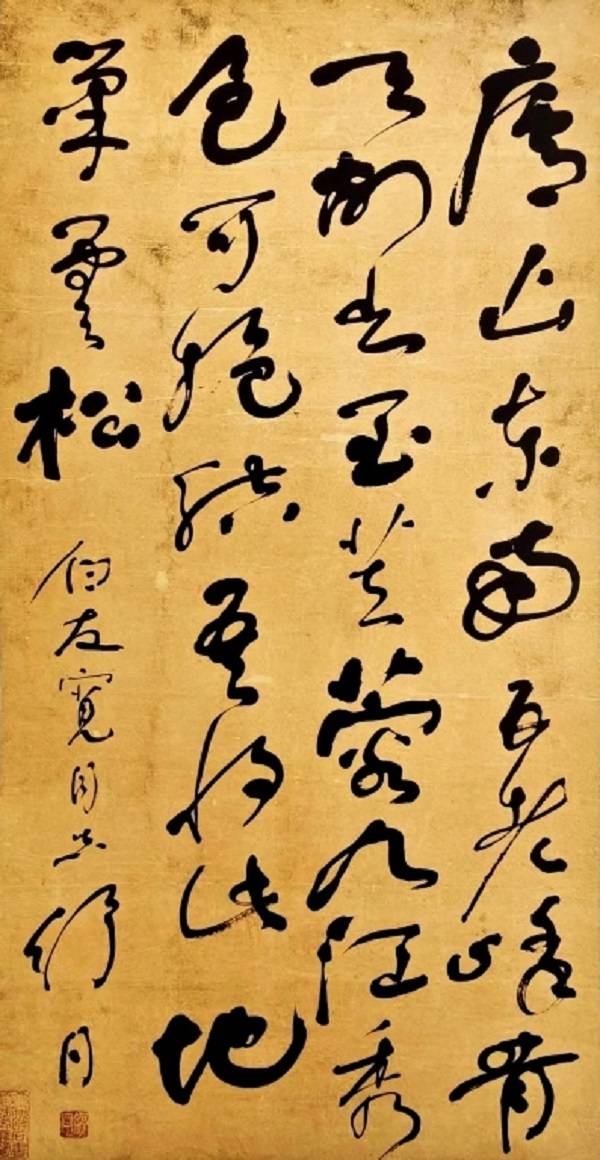 廬山東南五老峰青
天削出金芙蓉九江秀
色可攬結吾將此地
巢雲松
友寬